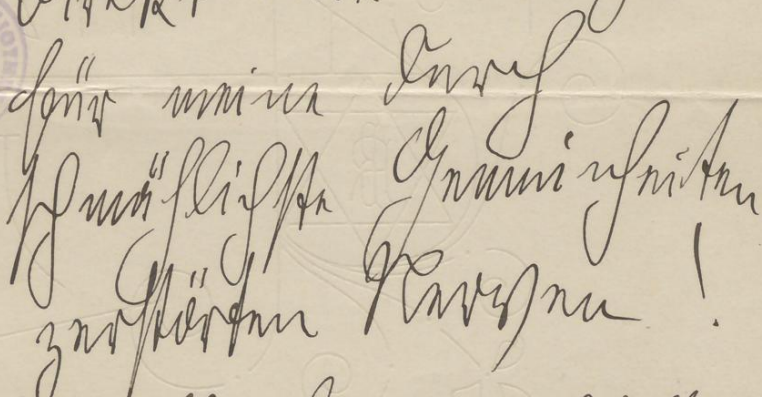 für meine durch
schmählichste Gemeinheiten
zerstörten Nerven!